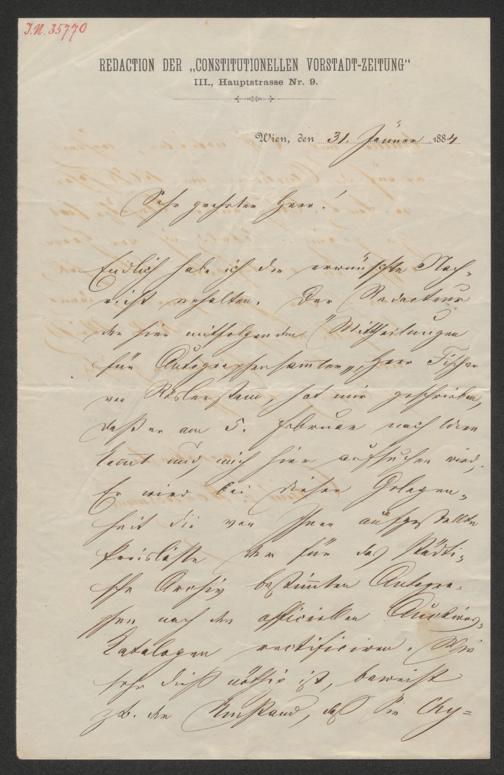 I.N. 35770
REDACTION DER „CONSTITUTIONELLEN VORSTADT-ZEITUNG"
III., Hauptstrasse Nr. 9.
Wien, den 31. Jänner 1884
Sehr geehrter Herr!
Endlich habe ich die erwünschte Nach-
richt erhalten. Der Redacteur
der hier mitfolgenden „Mittheilungen
für Autographensammler", Herr Fischer
von Röslerstamm hat mir geschrieben,
daß er am 5. Februar nach Wien
kommt und mich hier aufsuchen wird.
Er wird bei dieser Gelegen-
heit die von Ihnen aufgestellte
Preisliste der für das städti-
sche Archiv bestimmten Autogra-
fen nach den officiellen Auctions-
Katalogen rectificiren. Wie
sehr dieß nöthig ist, beweist
z.b. der Umstand, daß Sie